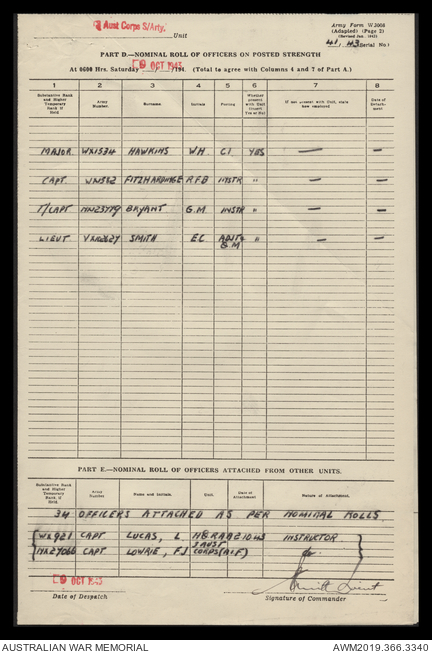 Aust Corps S/Arty. Unit
Army Form W.3008
(Adapted) (Page 2)
41/43 (Serial No)
PART D.—NOMINAL ROLL OF OFFICERS ON POSTED STRENGTH
At 0600 Hrs. Saturday 9 OCT 1943 194 . (Total to agree with Columns 4 and 7 of Part A.)
1 2 3 4 5 6 7 8
Substantive Rank and Higher Temporary Rank if Held
Army Number.
Surname.
Initials
Posting
Whether present with Unit (Insert Yes or No)
If not present with Unit, state how employed
Date of Detachment
MAJOR WX1534 HAWKINS W.H. C1 YES — —
CAPT. FITZHARDINGE R.F.B INSTR " — —
T/CAPT BRYANT G.M. INSTR " — —
LIEUT SMITH E.C ADJT & Q.M " — —
PART E.—NOMINAL ROLL OF OFFICERS ATTACHED FROM OTHER UNITS.
Substantive Rank and Higher Temporary Rank if Held.
Army Number
Name and Initials.
Unit.
Date of Attachment
Nature of Attachment.
34 OFFICERS ATTACHED AS PER NOMINAL ROLLS
WX921 CAPT LUCAS, L. INSTRUCTOR
NX27066 CAPT LOWRIE, F.J 3 AUST CORPS (AIF)
9 OCT 1943
Date of Despatch
Lieut
Signature of Commander
AUSTRALIAN WAR MEMORIAL
AWM2019.366.3340